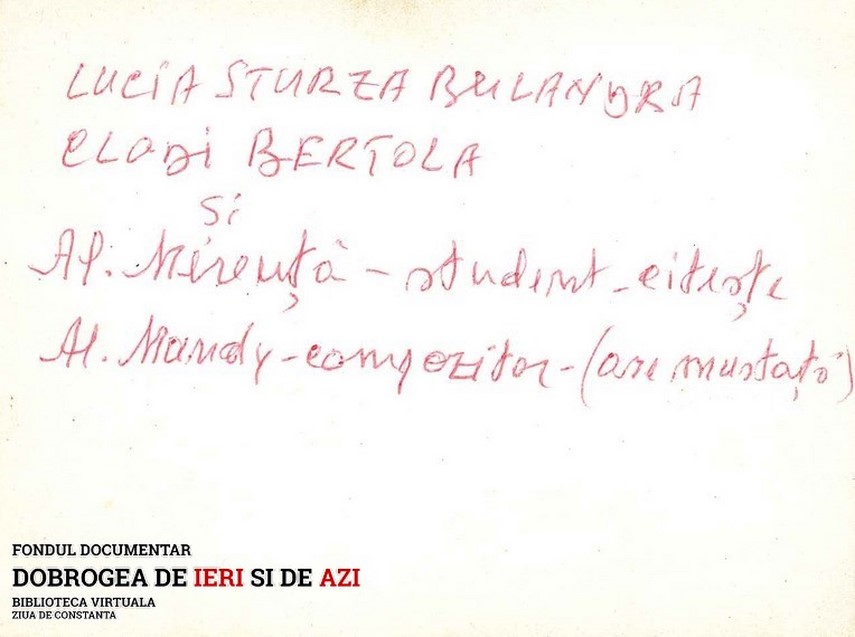 LUCIA STURZA BULANDRA
CLODI BERTOLA
si
Al. Mirenţă - student - citeşte
Al. Mandy - compozitor - (are mustaţă)
FONDUL DOCUMENTAR
DOBROGEA DE IERI SI DE AZI
BIBLIOTECA VIRTUALA
ZIUA DE CONSTANTA